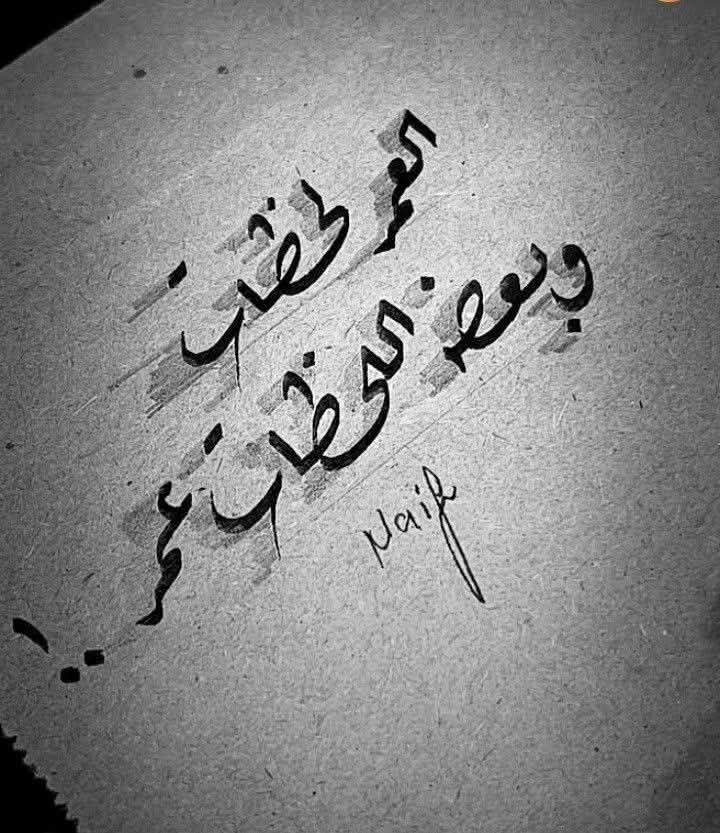 العمر لحظات
وبعض اللحظات عمر..!
Naif